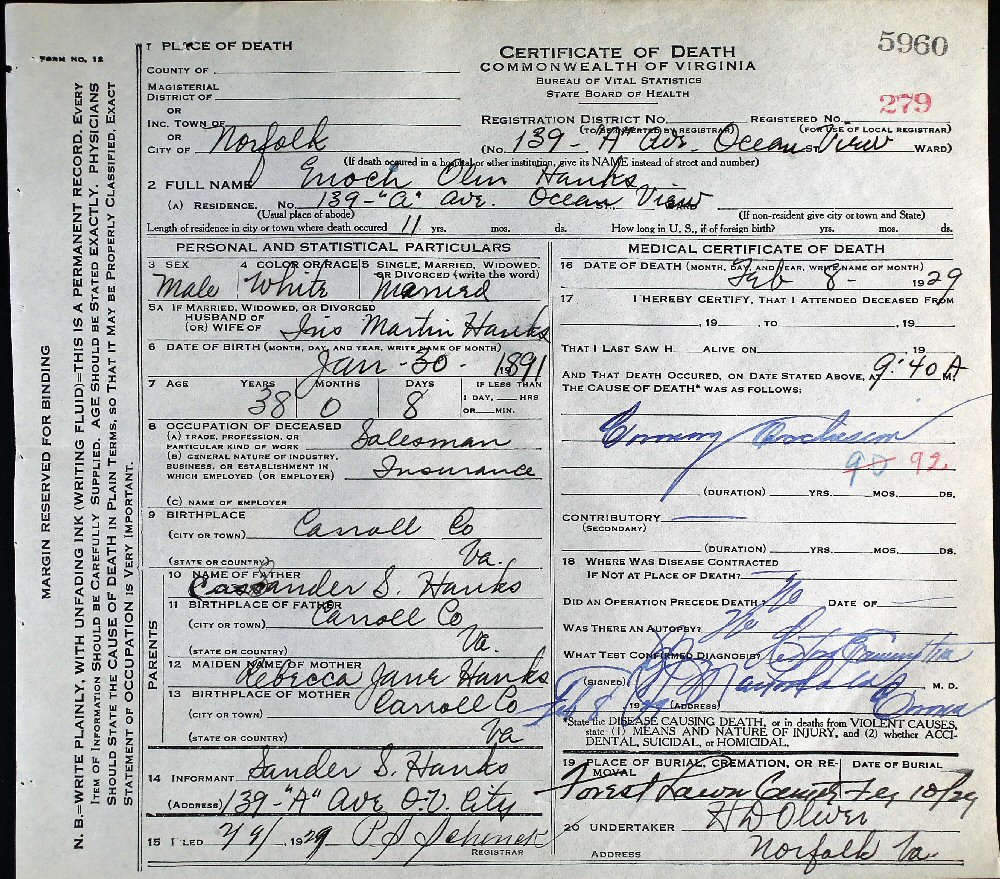 FORM NO. 12
MARGIN RESERVED FOR BINDING
N. B.—WRITE PLAINLY, WITH UNFADING INK (WRITING FLUID)=THIS IS A PERMANENT RECORD. EVERY
ITEM OF INFORMATION SHOULD BE CAREFULLY SUPPLIED. AGE SHOULD BE STATED EXACTLY. PHYSICIANS
SHOULD STATE THE CAUSE OF DEATH IN PLAIN TERMS, SO THAT IT MAY BE PROPERLY CLASSIFIED. EXACT
STATEMENT OF OCCUPATION IS VERY IMPORTANT.
1 PLACE OF DEATH
COUNTY OF
MAGISTERIAL
DISTRICT OF
OR
INC. TOWN OF
OR
CITY OF Norfolk
CERTIFICATE OF DEATH
COMMONWEALTH OF VIRGINIA
BUREAU OF VITAL STATISTICS
STATE BOARD OF HEALTH
5960
279
REGISTRATION DISTRICT NO. REGISTERED NO.
(TO BE INSERTED BY REGISTRAR) (FOR USE OF LOCAL REGISTRAR)
(No. 139- "A" Ave. Ocean View ST. WARD)
(If death occured in a hospital or other institution, give its NAME instead of street and number)
2 FULL NAME Enoch Olin Hanks
(A) RESIDENCE. No. 139-"A" Ave. Ocean View
(Usual place of abode) (If non-resident give city or town and State)
Length of residence in city or town where death occured 11 yrs. mos. ds. How long in U. S., if of foreign birth? yrs. mos. ds.
PERSONAL AND STATISTICAL PARTICULARS
3 SEX 4 COLOR OR RACE 5 SINGLE, MARRIED, WIDOWED,
OR DIVORCED (write the word)
Male White Married
5A IF MARRIED, WIDOWED, OR DIVORCED
HUSBAND OF
(OR) WIFE OF Martin Hanks
6 DATE OF BIRTH (MONTH, DAY, AND YEAR, WRITE NAME OF MONTH)
Jan-30-1891
7 AGE YEARS MONTHS DAYS IF LESS THAN
1 DAY, HRS
OR MIN.
38 0 8
8 OCCUPATION OF DECEASED
(A) TRADE, PROFESSION, OR
PARTICULAR KIND OF WORK Salesman
(B) GENERAL NATURE OF INDUSTRY,
BUSINESS, OR ESTABLISHMENT IN
WHICH EMPLOYED (OR EMPLOYER) Insurance
(C) NAME OF EMPLOYER
9 BIRTHPLACE
(CITY OR TOWN) Carroll Co
(STATE OR COUNTRY) Va.
PARENTS
10 NAME OF FATHER
Sander S. Hanks
11 BIRTHPLACE OF FATHER
(CITY OR TOWN) Carroll Co
(STATE OR COUNTRY) Va.
12 MAIDEN NAME OF MOTHER
Rebecca Jane Hanks
13 BIRTHPLACE OF MOTHER
(CITY OR TOWN) Carroll Co
(STATE OR COUNTRY) Va
14 INFORMANT Sander S. Hanks
(ADDRESS) 139-"A" Ave O.V. City
15 FILED 2/9/, 1929 P S Schenck
REGISTRAR
MEDICAL CERTIFICATE OF DEATH
16 DATE OF DEATH (MONTH, DAY, AND YEAR, WRITE NAME OF MONTH)
Feb 8- 1929
17 I HEREBY CERTIFY, THAT I ATTENDED DECEASED FROM
, 19 , TO , 19
THAT I LAST SAW H ALIVE ON 19
AND THAT DEATH OCCURED, ON DATE STATED ABOVE, AT 9:40 A M.
THE CAUSE OF DEATH* WAS AS FOLLOWS:
90 92
(DURATION) YRS. MOS. DS.
CONTRIBUTORY
(SECONDARY)
(DURATION) YRS. MOS. DS.
18 WHERE WAS DISEASE CONTRACTED
IF NOT AT PLACE OF DEATH?
DID AN OPERATION PRECEDE DEATH? No DATE OF
WAS THERE AN AUTOPSY? No
WHAT TEST CONFIRMED DIAGNOSIS?
(SIGNED) M. D.
Feb 8, 1929 (ADDRESS)
*State the DISEASE CAUSING DEATH, or in deaths from VIOLENT CAUSES,
state (1) MEANS AND NATURE OF INJURY, and (2) whether ACCI-
DENTAL, SUICIDAL, or HOMICIDAL.
19 PLACE OF BURIAL, CREMATION, OR RE- DATE OF BURIAL
MOVAL
Forest Lawn 10/29
20 UNDERTAKER H D Oliver
ADDRESS Norfolk Va.